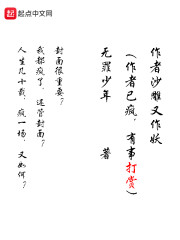 起点中文网
作者沙雕又作妖
(作者已疯,有事打赏)
无罪少年 著
封面很重要?
我都疯了,还管封面?
人生几十载,疯一场,又如何?